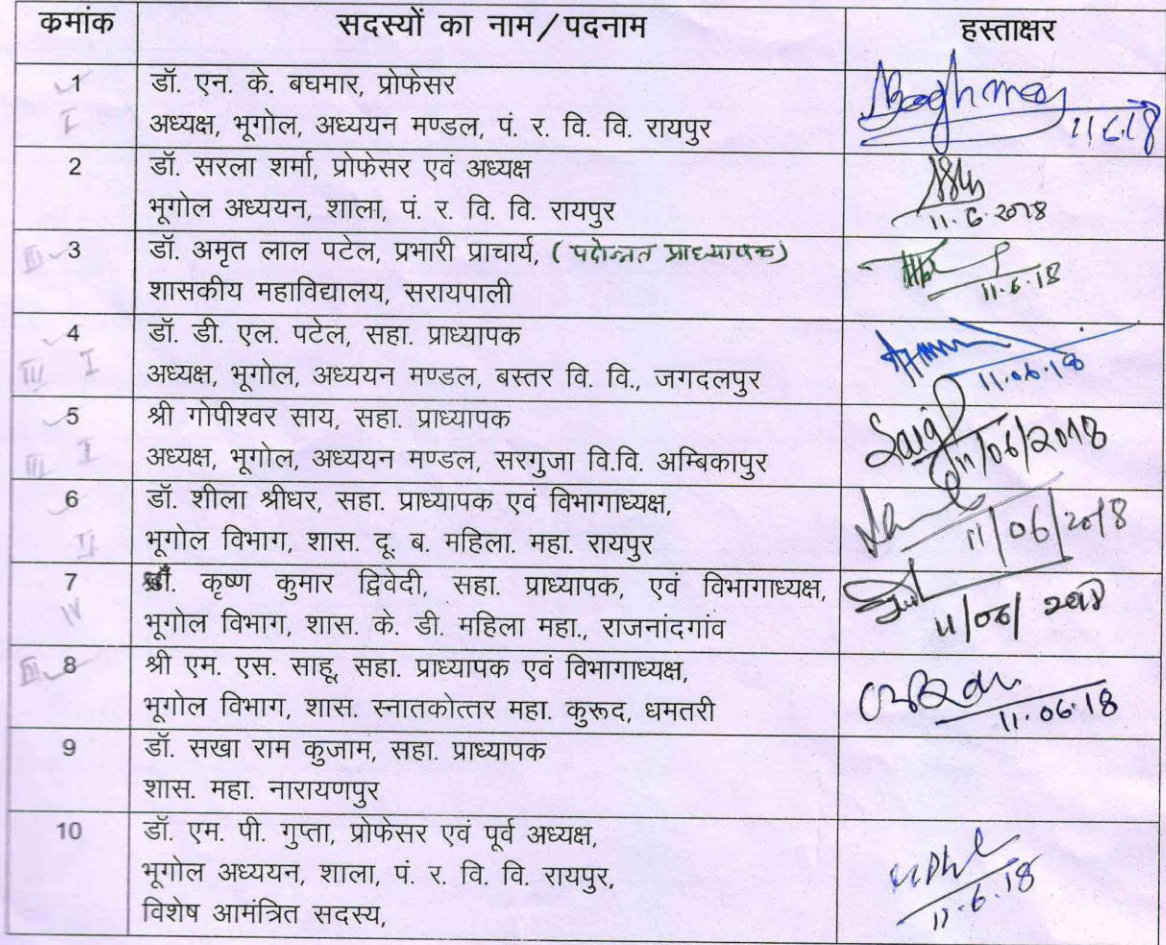 क्रमांक सदस्यों का नाम/पदनाम हस्ताक्षर
1 डॉ. एन. के. बघमार, प्रोफेसर
I अध्यक्ष, भूगोल, अध्ययन मण्डल, पं. र. वि. वि. रायपुर Baghmar 11.6.18
2 डॉ. सरला शर्मा, प्रोफेसर एवं अध्यक्ष
भूगोल अध्ययन, शाला, पं. र वि. वि. रायपुर 11.6.2018
III 3 डॉ. अमृत लाल पटेल, प्रभारी प्राचार्य, (पदोन्नत प्राध्यापक)
शासकीय महाविद्यालय, सरायपाली 11.6.18
4 डॉ. डी. एल. पटेल, सहा. प्राध्यापक
III I अध्यक्ष, भूगोल, अध्ययन मण्डल, बस्तर वि. वि., जगदलपुर 11.06.18
5 श्री गोपीश्वर साय, सहा. प्राध्यापक
III I अध्यक्ष, भूगोल, अध्ययन मण्डल, सरगुजा वि.वि. अम्बिकापुर 11/06/2018
6 डॉ. शीला श्रीधर, सहा. प्राध्यापक एवं विभागाध्यक्ष,
II भूगोल विभाग, शास. दू. ब. महिला. महा. रायपुर 11/06/2018
7 डॉ. कृष्ण कुमार द्विवेदी, सहा. प्राध्यापक, एवं विभागाध्यक्ष,
IV भूगोल विभाग, शास. के. डी. महिला महा., राजनांदगांव 11/06/2018
III 8 श्री एम. एस. साहू, सहा. प्राध्यापक एवं विभागाध्यक्ष,
भूगोल विभाग, शास. स्नातकोत्तर महा. कुरूद, धमतरी 11.06.18
9 डॉ. सखा राम कुजाम, सहा प्राध्यापक
शास. महा. नारायणपुर
10 डॉ. एम. पी. गुप्ता, प्रोफेसर एवं पूर्व अध्यक्ष,
भूगोल अध्ययन, शाला, पं. र. वि. वि. रायपुर,
विशेष आमंत्रित सदस्य, 11.6.18